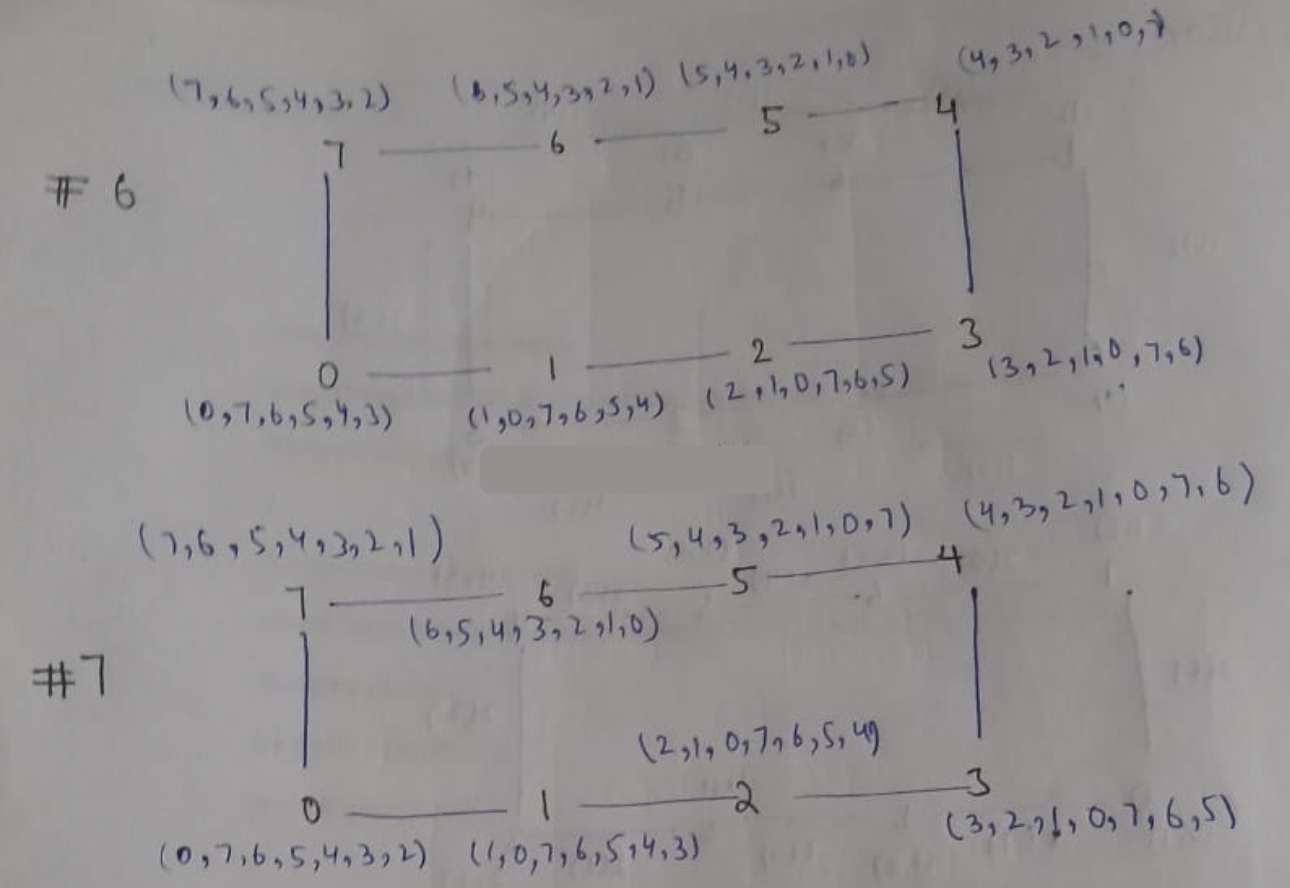 (7,6,5,4,3,2) (6,5,4,3,2,1) (5,4,3,2,1,0) (4,3,2,1,0,7
7 6 5 4
# 6
0 1 2 3
(0,7,6,5,4,3) (1,0,7,6,5,4) (2,1,0,7,6,5) (3,2,1,0,7,6)
(7,6,5,4,3,2,1) (5,4,3,2,1,0,7) (4,3,2,1,0,7,6)
7 6 5 4
(6,5,4,3,2,1,0)
#7
(2,1,0,7,6,5,4)
0 1 2 3
(0,7,6,5,4,3,2) (1,0,7,6,5,4,3) (3,2,1,0,7,6,5)